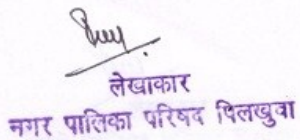 लेखाकार
नगर पालिका परिषद पिलखुवा